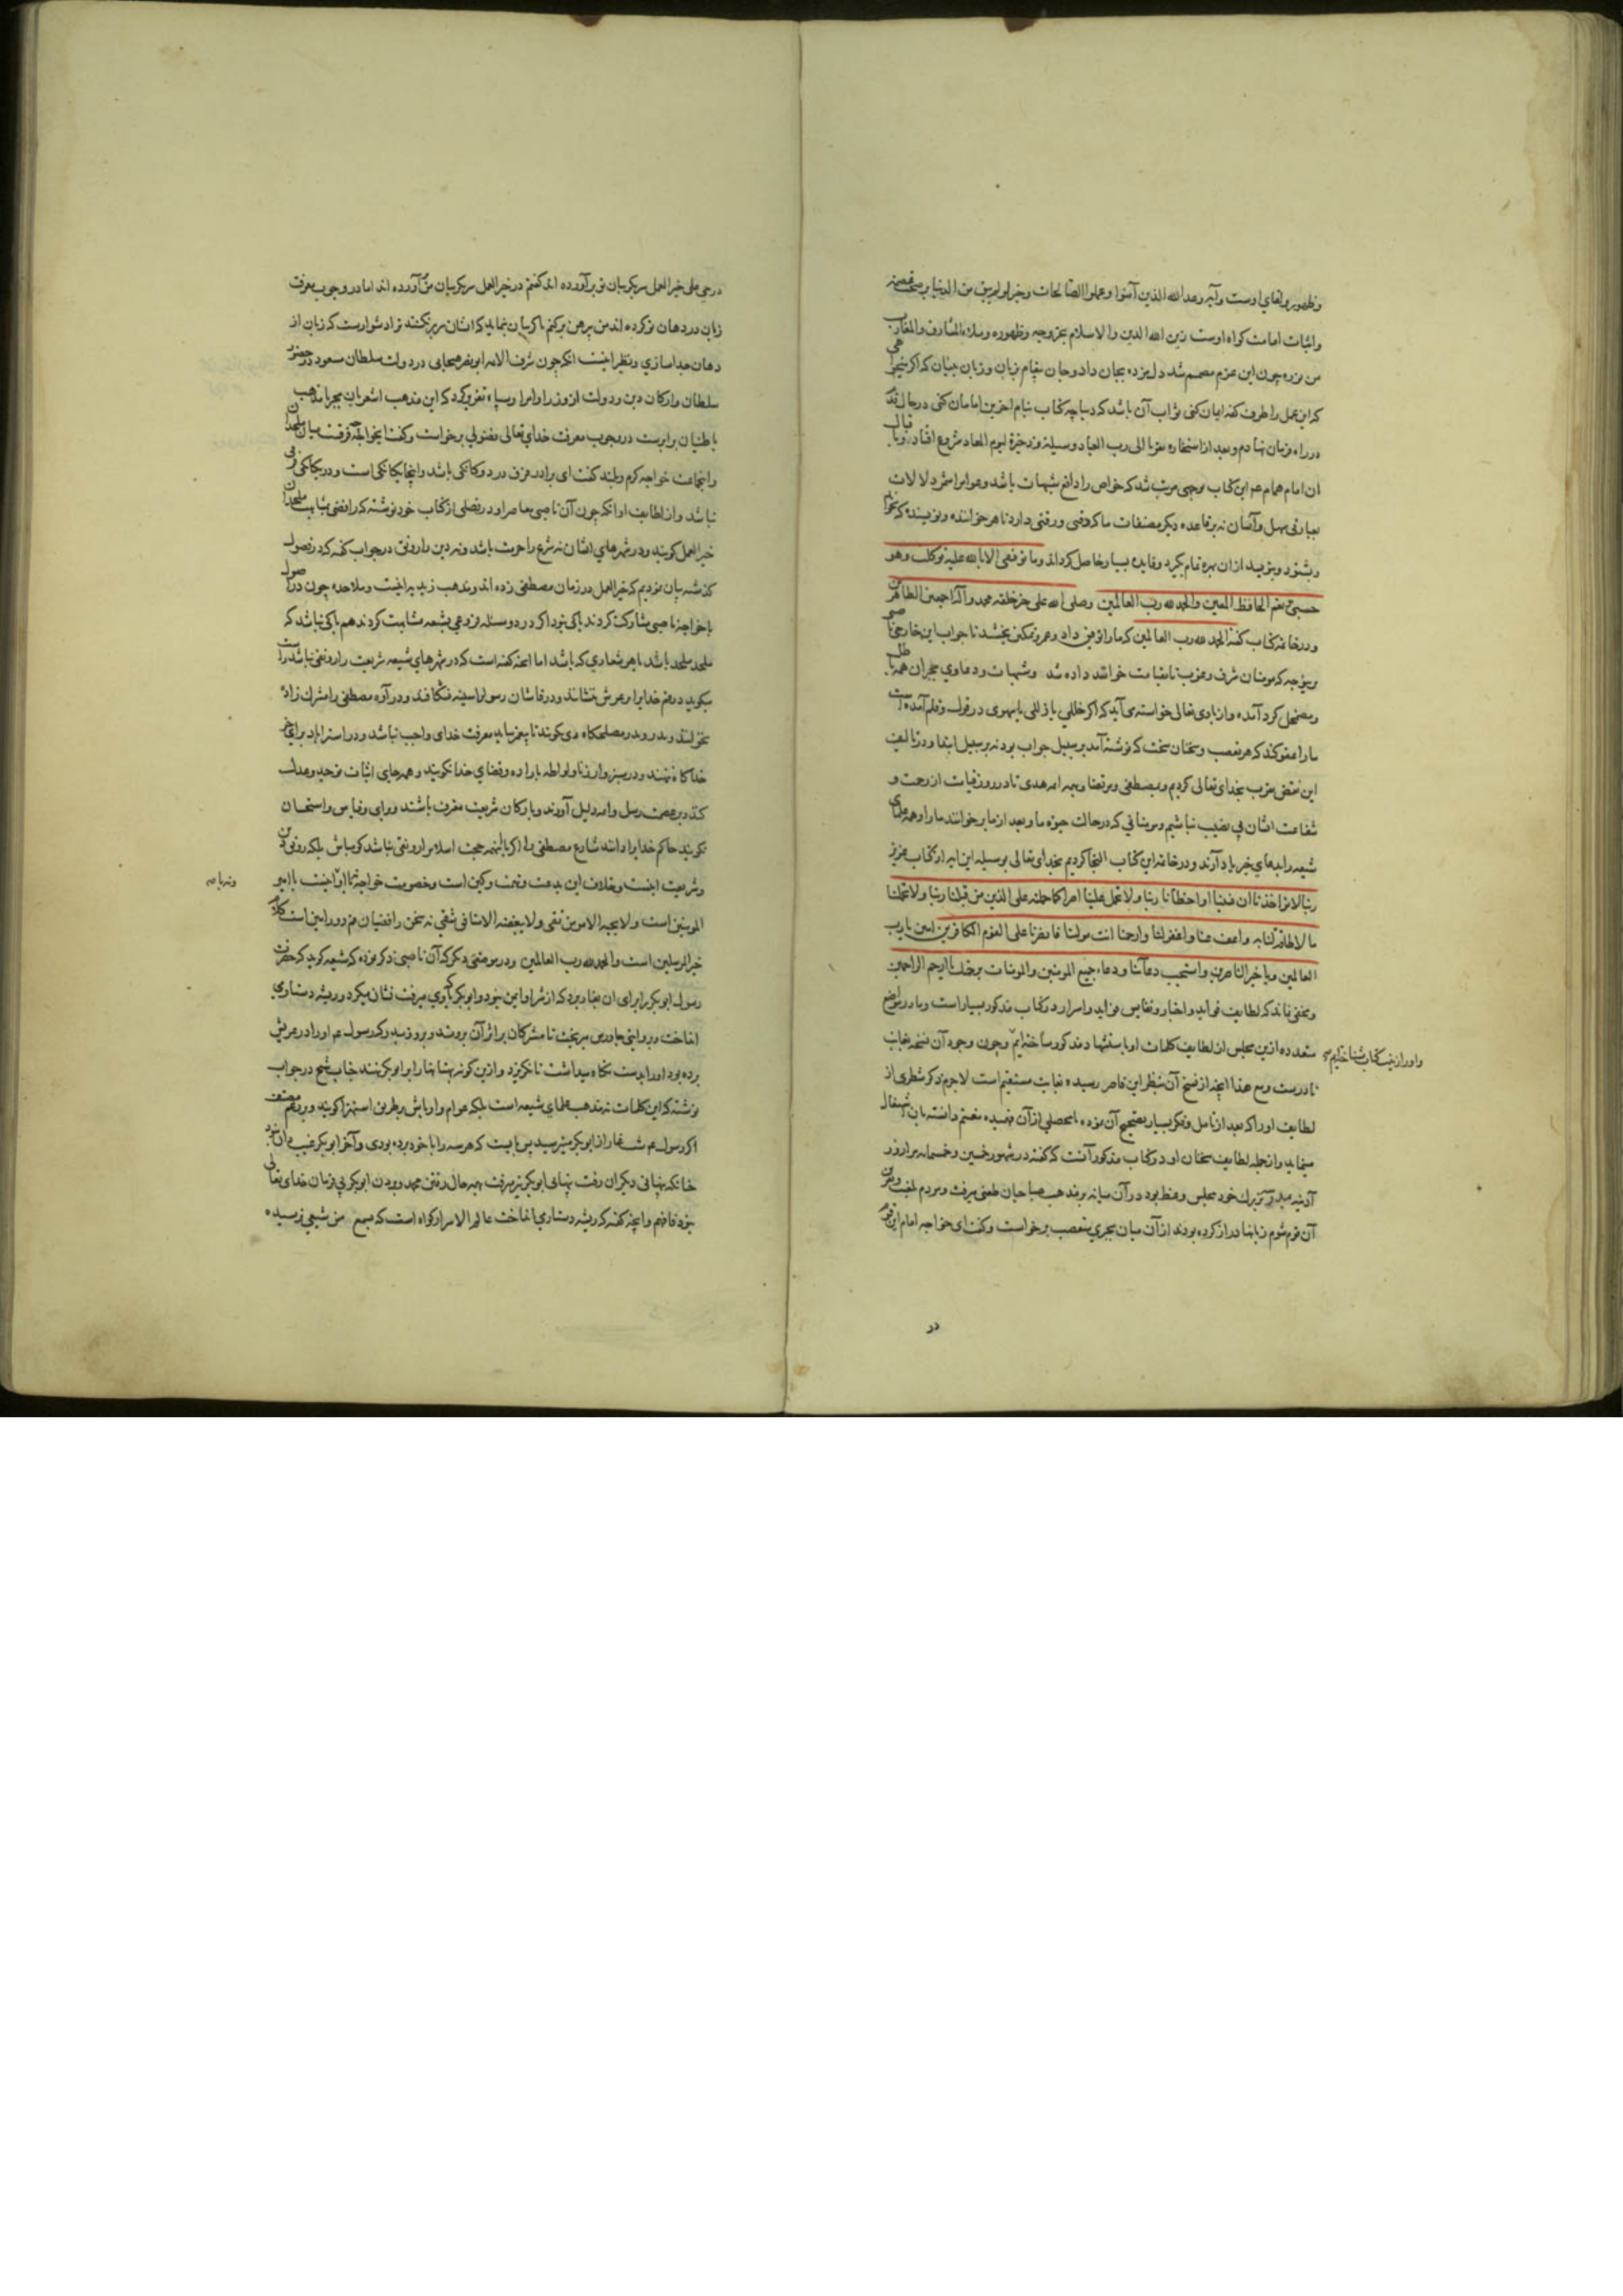 وظهور وبقای اوست وآیه وعد الله الذین آمنوا وعملوا الصالحات وخبر لو لم یبق من الدنیا بر صحت
واثبات امامت کواه اوست زین الله الدین والاسلام بخروجه وظهوره وملاء المشارق والمغارب
من بنده چون این عزم مصمم شد دل بمژده بجان داد وجان بپیام زبان وزبان به بنان که اکر نیخواهی
که این عمل را طرف کفه ایمان کنی ثواب آن باشد که دیباچه کتاب بنام آخرین امامان کنی در حال قدم
در راه فرمان نهادم وبعد از استخاره تقربا الی رب العباد وسیلة وذخیرة لیوم المعاد شروع افتاد
آن امام همام عم این کتاب بوجهی مرتب شد که خواص را دافع شبهات باشد وعوام را مثمر دلالات
بعبارتی سهل وآسان نه بر قاعده دیکر مصنفات ما که دقتی ورقتی دارد تا هر خواننده ونویسنده که بخواند
وبشنود وبنویسد از آن بهره تمام بکیرد وفایده بسیار حاصل کرداند وما توفیقی الا بالله علیه توکلت وهو
حسبی ونعم الحافظ المعین والحمد لله رب العالمین وصلی الله علی خیر خلقه محمد وآله اجمعین الطاهرین
ودر خاتمه کتاب کفته الحمد لله رب العالمین که ما را توفیق داد وعمر وتمکین بخشید تا جواب این خارجی
بر وجهی که مومنان شرق وغرب تا بقیامت خوانند داده شد وشبهات ودعاوی مجبران همه باطل
ومضمحل کرد آمده واز باری تعالی خواسته می آید که اکر خللی یا زللی یا سهوی در قول وقلم آمده است
ما را عفو کند که هر تعصب وسخنان سخت که نوشته آمد بر سبیل جواب بود نه بر سبیل ابتدا ودر تالیف
این نقض تقرب بخدای تعالی کردیم وبمصطفی ومرتضا وبهمه ائمه هدی تا در روز قیامت از رحمت و
شفاعت ایشان بی نصیب نباشیم ومومنانی که در حالت حیوة ما وبعد از ما بر خوانند ما را وهمه علمای
شیعه را بدعای خیر یاد آرند ودر خاتمه این کتاب التجا کردیم بخدای تعالی بوسیله این آیه از کتاب عزیز
ربنا لا تؤاخذنا ان نسینا او اخطأنا ربنا ولا تحمل علینا اصرا کما حملته علی الذین من قبلنا ربنا ولا تحملنا
ما لا طاقة لنا به واعف عنا واغفر لنا وارحمنا انت مولینا فانصرنا علی القوم الکافرین امین یا رب
العالمین ویا خیر الناصرین واستجب دعآئنا ودعاء جمیع المومنین والمومنات برحمتک یا ارحم الراحمین
ومخفی نماند که لطایف فواید واخبار ونفایس فواید واسرار در کتاب مذکور بسیار است وما در مواضع
متعدده ازین مجلس از لطایف کلمات او با سنیها مذکور ساخته ایم وچون وجود آن نسخه بغایت
واو را ازین کتاب شناخته ایم
نادرست ومع هذا انچه از نسخ آن بنظر این قاصر رسیده بغایت مستقیم است لاجرم ذکر شطری از
لطایف او را که بعد از تامل وفکر بسیار بتصحیح آن نموده ما یحصلی از آن فهمیده مغتنم دانسته بآن اشتغال
مینماید واز جمله لطایف سخنان او در کتاب مذکور آنست که کفته در شهور خمسین وخمسمائه مرا روز
آدینه بمدرسه بزرک خود مجلس وعظ بود در آن میانه بمذهب صباحیان طعنی میرفت ومردم لعنت ونفرین
آن قوم شوم زبانها دراز کرده بودند از آن میان مجبری متعصب بر خواست وکفت ای خواجه امام این قوم
در
در حی علی خیر العمل سر بکریبان تو بر آورده اند کفتم در خیر العمل سر بکریبان من آورده اند اما در وجوب معرفت
زبان در دهان تو کرده اند من پیرهن بر کنم تا کریبان نماید که ایشان سر بر نکنند ترا دشوارست که زبان از
دهان جدا سازی ونظیر اینست آنکه چون شرف الائمه ابو نصر هسجانی در دولت سلطان مسعود در حضور
سلطان وارکان دین ودولت از وزرا وامرا وسپاه تقریر کرد که این مذهب اشعریان مجبر با مذهب
باطنیان برابرست در وجوب معرفت خدای تعالی فضولی برخواست وکفت ایخواجه چه فرقت میان ملحدان
واینجماعت خواجه کرم وبلند کفت ای برادر فرق در دوکانکی باشد واینجا یکانکی است ودر یکانکی فرقی
نباشد واز لطایف او آنکه چون آن ناصبی معاصر او در فصلی از کتاب خود نوشته که رافضی بمثابت ملحدان
خیر العمل کویند ودر شهرهای ایشان نه شرع را حرمت باشد ونه دین را رونق در جواب کفته که در فصول
کذشته بیان نمودیم که خیر العمل در زمان مصطفی زده اند ومذهب زیدیه اینست وملاحده چون در اصول
با خواجه ناصبی مشارکت کردند باکی نبود اکر در دو مسئله فرعی بشیعه مشابهت کردند هم باکی نباشد که
ملحد ملحد باشد با هر شعاری که باشد اما آنچه کفته است که در شهرهای شیعه شریعت را رونقی نباشد راست
میکوید در قم خدایرا بر عرش ننشانند ودر قاشان رسول را سینه نشکافند ودر آوه مصطفی را مشرک زاده
نخوانند
خدا کافر نهند ودر سبزوار زنا ولواطه باراده وقضای خدا نکویند وهمه جای اثبات توحید وعدل
کنند وبر عصمت رسل وائمه دلیل آورند وبارکان شریعت مقرب باشند وبرای وقیاس واستحسان
نکویند حاکم خدایرا دانند شارع مصطفی را اکر با اینهمه حجت اسلام را رونقی نباشد کو مباش بلکه رونق دین
وشریعت اینست وبخلاف این بدعت وتهمت وکین است وخصومت خواجه نه با اینست با امیر
ونه با
المومنین است ولا یحبه الا مومن تقی ولا یبغضه الا منافق شقی نه سخن رافضیان قم وورامین است کلام
خیر المرسلین است والحمد لله رب العالمین ودر موضعی دیکر که آن ناصبی ذکر نموده که شیعه کوید که حضرت
رسول ابو بکر را برای آن بغار برد که از شر او ایمن نبود وابو بکر میرفت نشان میکرد وریشه دستار می
انداخت وبروایتی جاورس میریخت تا مشرکان بر اثر آن بروند وبرو رسیدند وکه رسول عم او را در عریش
برده بود او را بدست نکاه میداشت تا نکریزد وازین کونه بهتانها را بر ابو بکر بندند جناب شیخ در جواب
نوشته که این کلمات نه مذهب علمای شیعه است بلکه عوام واوباش بطریق استهزا کویند وبر زعم مصنف
اکر رسول عم شب غار از ابو بکر میترسید بس بایست که هر سه را با خود برده بودی وآخر ابو بکر غیب دان نبود
چنانکه پنهانی دیکران رفت پنهانی ابو بکر نیز میرفت بهمه حال رفتن محمد وبردن ابو بکر بی فرمان خدای تعالی
نبود فافهم وانچه کفته که ریشه دستار می انداخت عالم الاسرار کواه است که بسمع من شیعی نرسیده